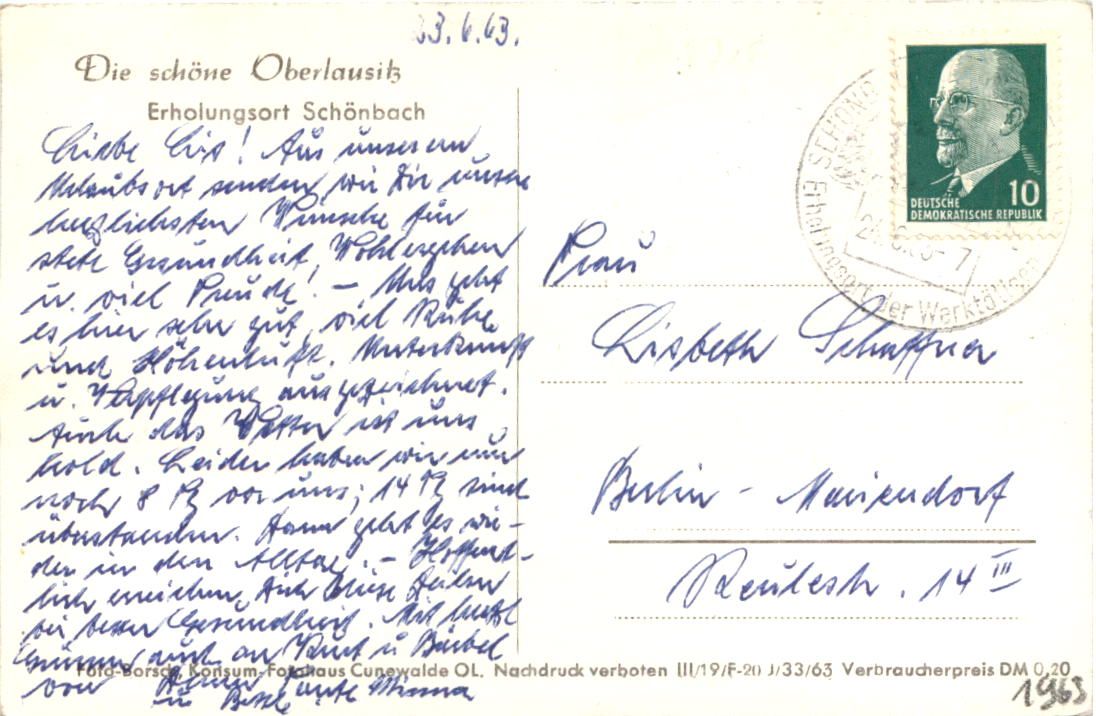 23.6.63.
Die schöne Oberlausitz
Erholungsort Schönbach
Liebe Lis! Aus unserem
Urlaubsort senden wir Dir unsere
herzlichsten Wünsche für
stete Gesundheit, Wohlergehen
u. viel Freude! – Uns geht
es hier sehr gut, viel Ruhe
und Höhenluft. Unterkunft
u. Verpflegung ausgezeichnet.
Auch das Wetter ist uns
hold. Leider haben wir nur
noch 8 Tg vor uns; 14 Tg sind
überstanden. Dann geht es wie-
der in den Alltag. – Hoffent-
lich erreichen Dich diese Zeilen
bei bester Gesundheit. Mit herzl
Grüssen auch an Kurt u Bärbel
von Deiner Tante Minna
u
DEUTSCHE
DEMOKRATISCHE REPUBLIK
10
Erholungsort der Werktätigen
Frau
Lisbeth Schaffner
Berlin - Mariendorf
Reulestr. 14 III
Foto-Borsch, Konsum-Fotohaus Cunewalde OL. Nachdruck verboten III/19/F-20 J/33/63 Verbraucherpreis DM 0,20
1963